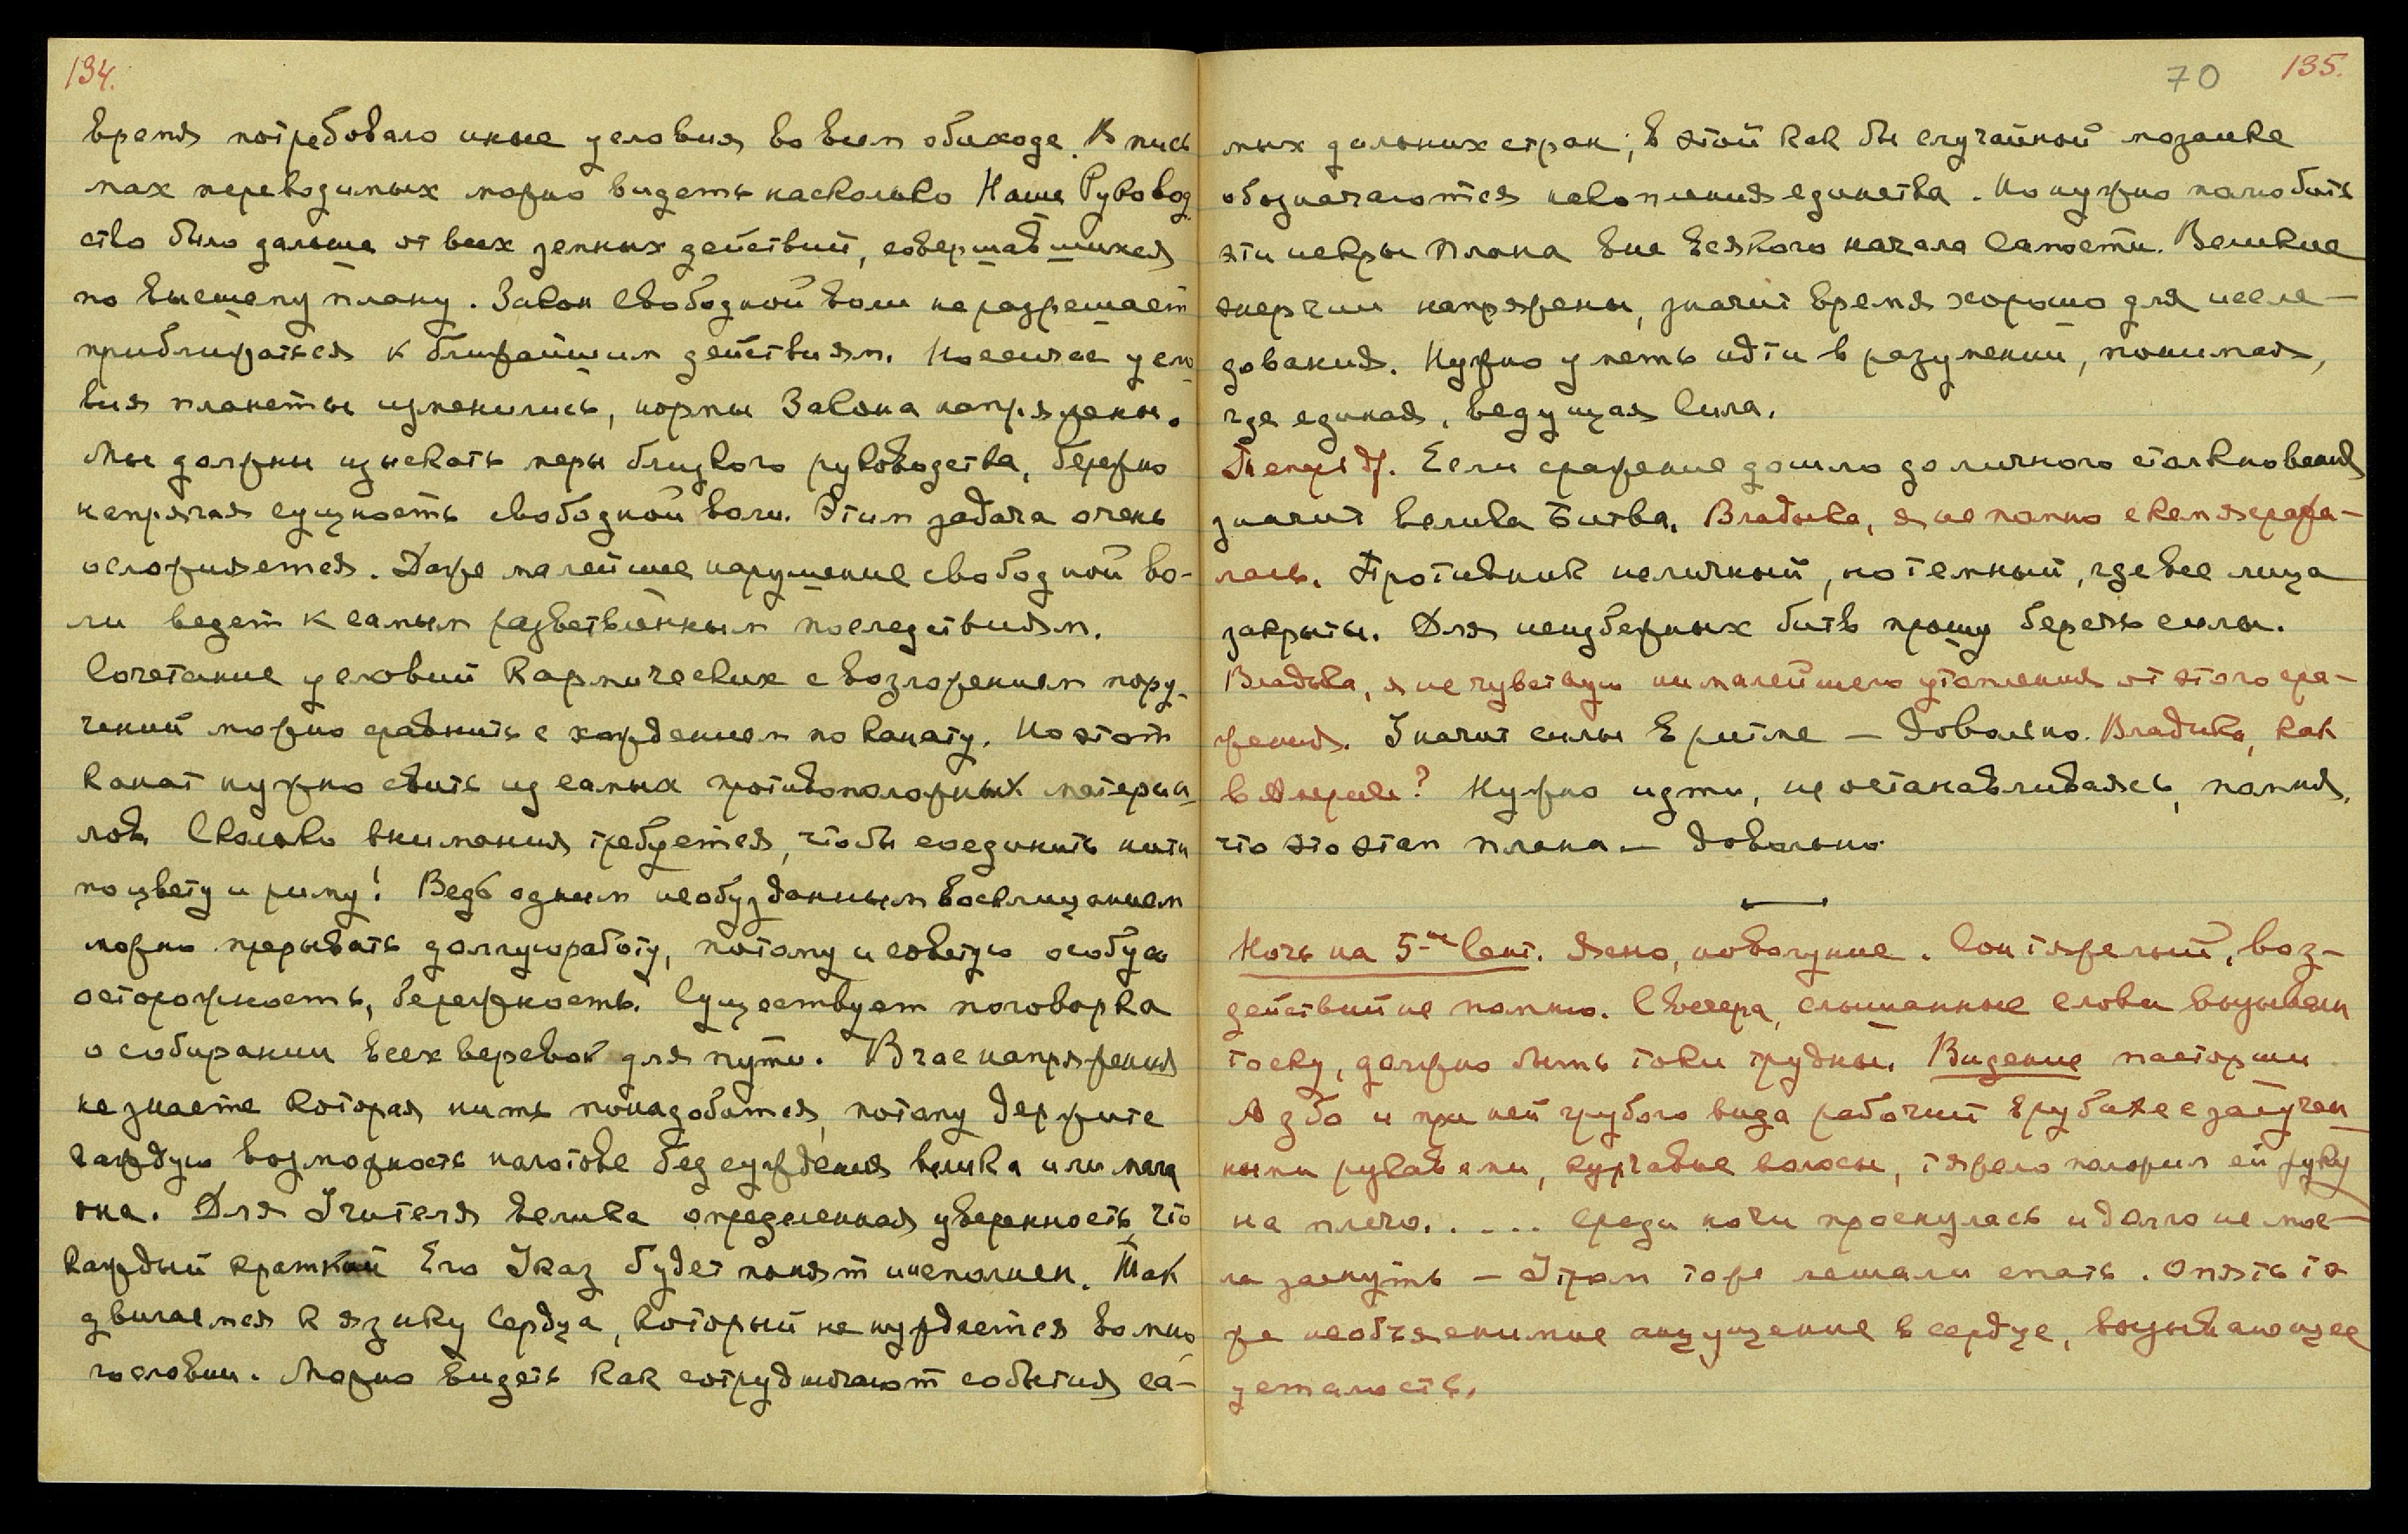 134.
время потребовало иные условия во всем обиходе. В пись
мах переводимых можно видеть насколько Наше Руковод
ство было дальше от всех земных действий, совершавшихся
по высшему плану. Закон свободной воли не разрешает
приближаться к ближайшим действиям. Но сейчас усло
вия планеты изменились, нормы Закона напряжены.
Мы должны изыскать меры близкого руководства, бережно
напрягая сущность свободной воли. Этим задача очень
осложняется. Даже малейшее нарушение свободной во-
ли ведет к самым разветвленным последствиям.
Сочетание условий кармических с возложением пору-
чений можно сравнить с хождением по канату. Но этот
канат нужно свить из самых противоположных матерья
лов. Сколько внимания требуется, чтобы соединить нити
по цвету и ритму! Ведь одним необузданным восклицанием
можно прерывать долгую работу, потому и советую особую
осторожность, бережность. Существует поговорка
о собирании всех веревок для пути. В час напряжения
не знаете которая нить понадобится, потому держите
каждую возможность наготове без суждения велика или мала
она. Для Учителя велика определенная уверенность, что
каждый краткий Его Указ будет понят и исполнен. Так
двигаемся к языку сердца, который не нуждается во мно
гословии. Можно видеть как сотрудничают события са-
70 135.
мых дальних стран; в этой как бы случайной мозаике
обозначаются накопления единства. Но нужно полюбить
эти искры Плана вне всякого начала самости. Великие
энергии напряжены, значит время хорошо для иссле-
дования. Нужно уметь идти в разумении, понимая,
где единая, ведущая Сила.
Если сражение дошло до личного столкновения
значит велика Битва. Владыка, я не помню с кем я сража-
лась. Противник не личный, но темный, где все лица
закрыты. Для неизбежных битв прошу беречь силы.
Владыка, я не чувствую ни малейшего утомления от этого сра-
жения. Значит силы в ритме — Довольно. Владыка, как
в Америке? Нужно идти, не останавливаясь, помня,
что это этап плана. — Довольно.
Ночь на 5-ое Сент. Ясно, новолуние. Сон тяжелый, воз-
действий не помню. С вечера, слышанные слова вызывали
тоску, должно быть токи трудны. Видение пасторши
и при ней грубого вида рабочий в рубахе с засучен
ными рукавами, курчавые волосы, тяжело положил ей руку
на плечо. . . . . Среди ночи проснулась и долго не мог-
ла заснуть — Утром тоже мешали спать. Опять то
же необъяснимое ощущение в сердце, вызывающее
усталость.